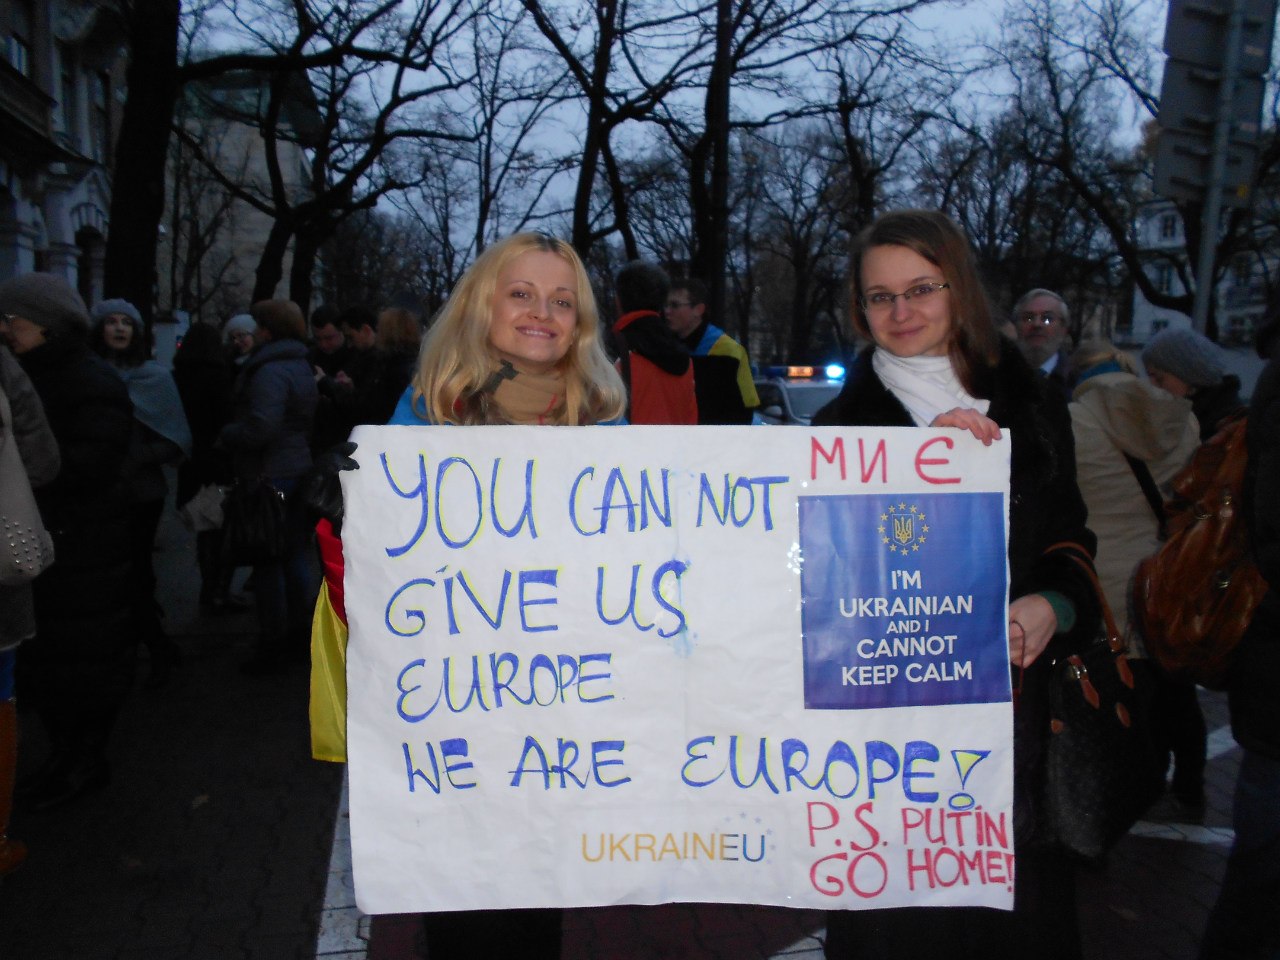 YOU CAN NOT
GIVE US
EUROPE
WE ARE EUROPE!
МИ Є
I'M
UKRAINIAN
AND I
CANNOT
KEEP CALM
UKRAINEU
P.S. PUTIN
GO HOME!